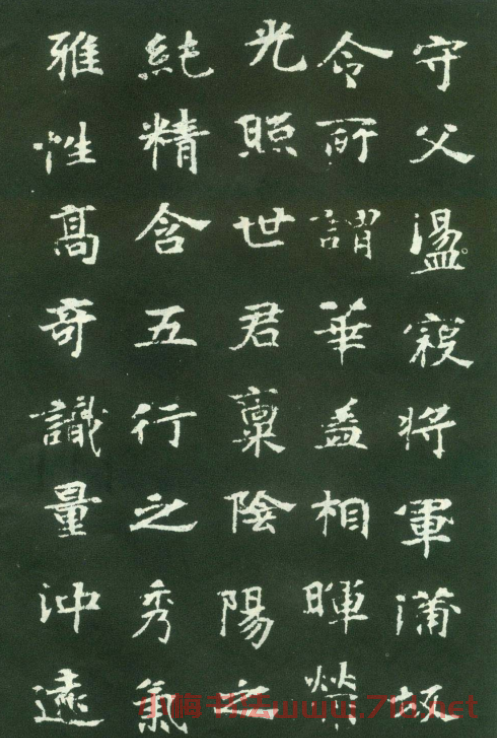 守父盪寇将軍蒲坂
令所謂華盖相暉榮
光照世君稟陰陽之
純精含五行之秀氣
雅性高奇識量沖遠
小梅书法www.71d.net